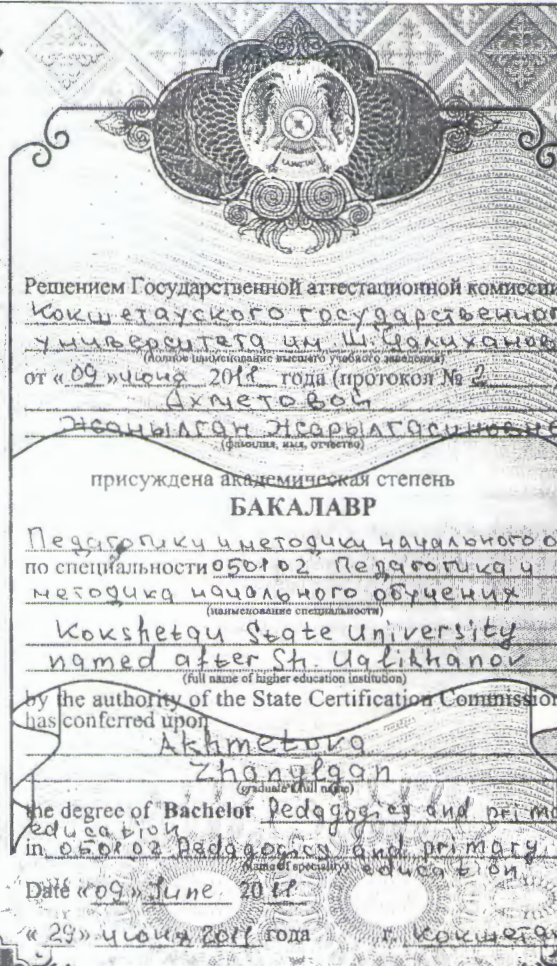 ҚАЗАҚСТАН
Решением Государственной аттестационной комиссии
Кокшетауского государственног
университета им Ш. Уалиханов
(полное наименование высшего учебного заведения)
от «09» июня 2011 года (протокол № 2
Ахметовой
Жанылган Жарылгасиновне
(фамилия, имя, отчество)
присуждена академическая степень
БАКАЛАВР
Педагогики и методики начального о
по специальности 050102 Педагогика и
методика начального обучения
(наименование специальности)
Kokshetau State University
named after Sh. Ualikhanov
(full name of higher education institution)
by the authority of the State Certification Commission
has conferred upon
Akhmetova
Zhanylgan
(graduate's full name)
the degree of Bachelor Pedagogics and prima
education
in 050102 Pedagogics and primary
(name of speciality) education
Date «09» June 2011
«29» июня 2011 года г. Кокшетау